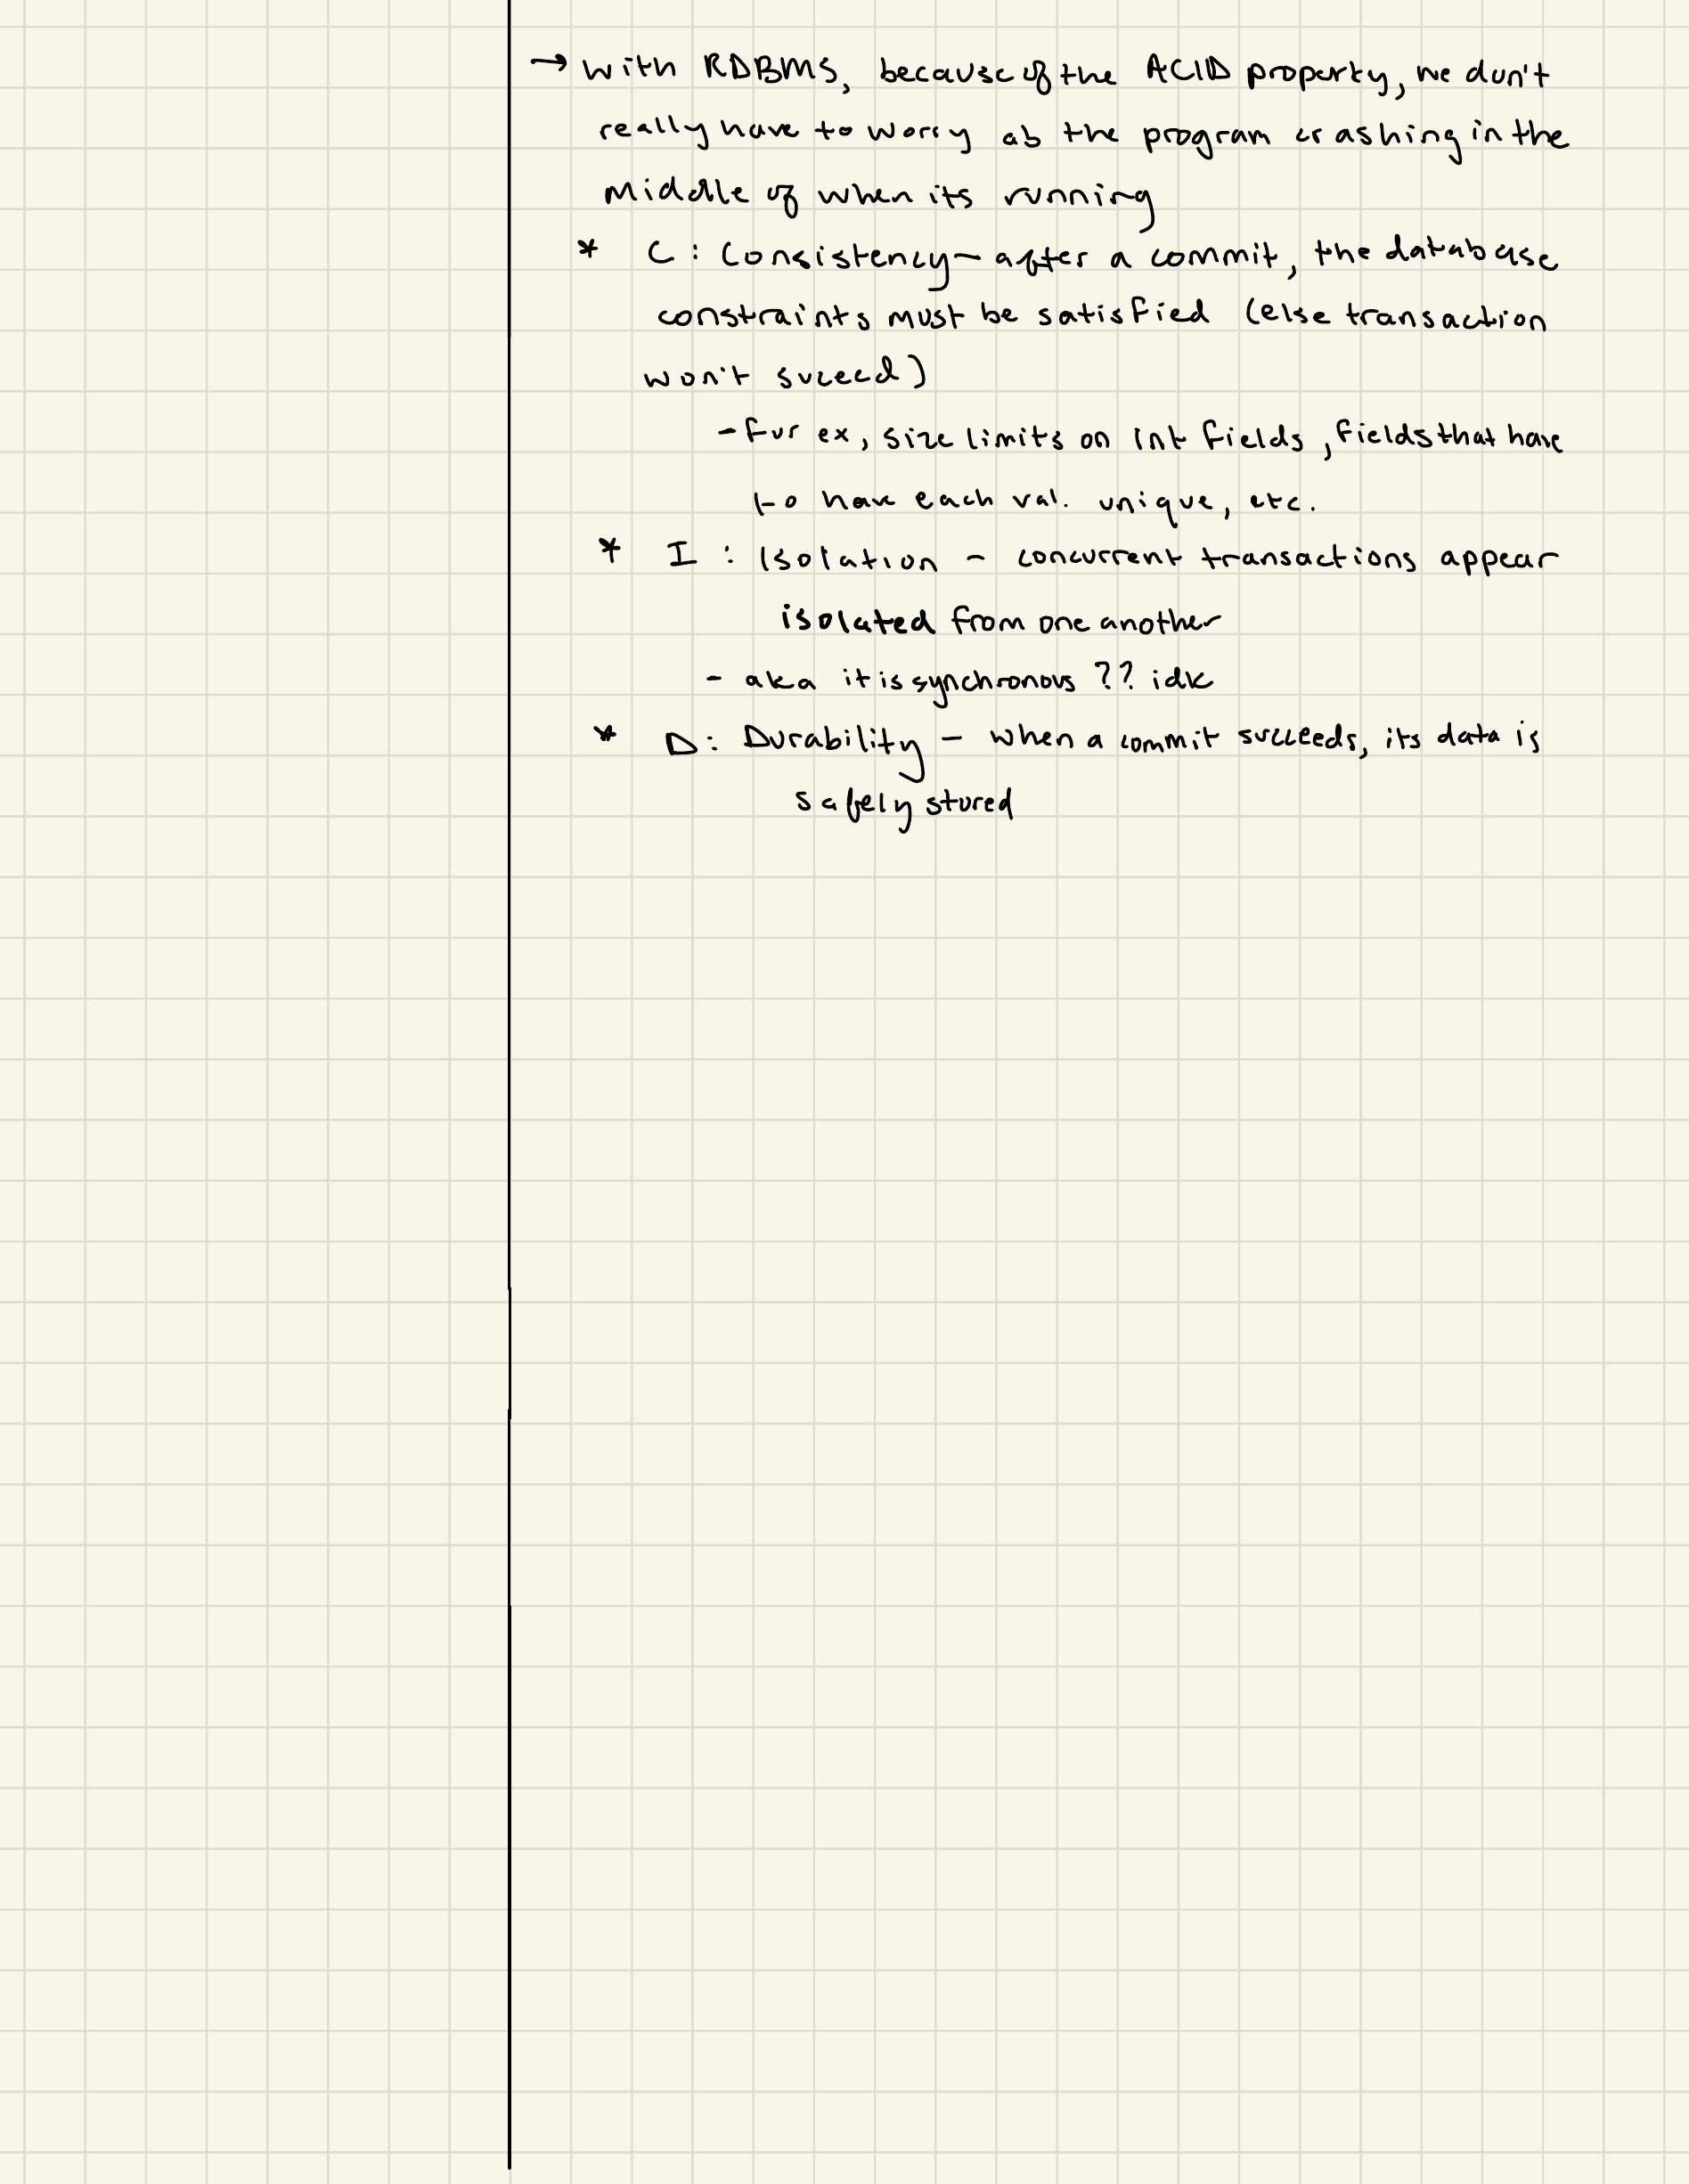 → with RDBMS, because of the ACID property, we don't
really have to worry ab the program crashing in the
middle of when its running
* C: Consistency - after a commit, the database
constraints must be satisfied (else transaction
won't succeed)
- for ex, size limits on int fields, fields that have
to have each val. unique, etc.
* I: Isolation - concurrent transactions appear
isolated from one another
- aka it is synchronous ?? idk
* D: Durability - when a commit succeeds, its data is
safely stored